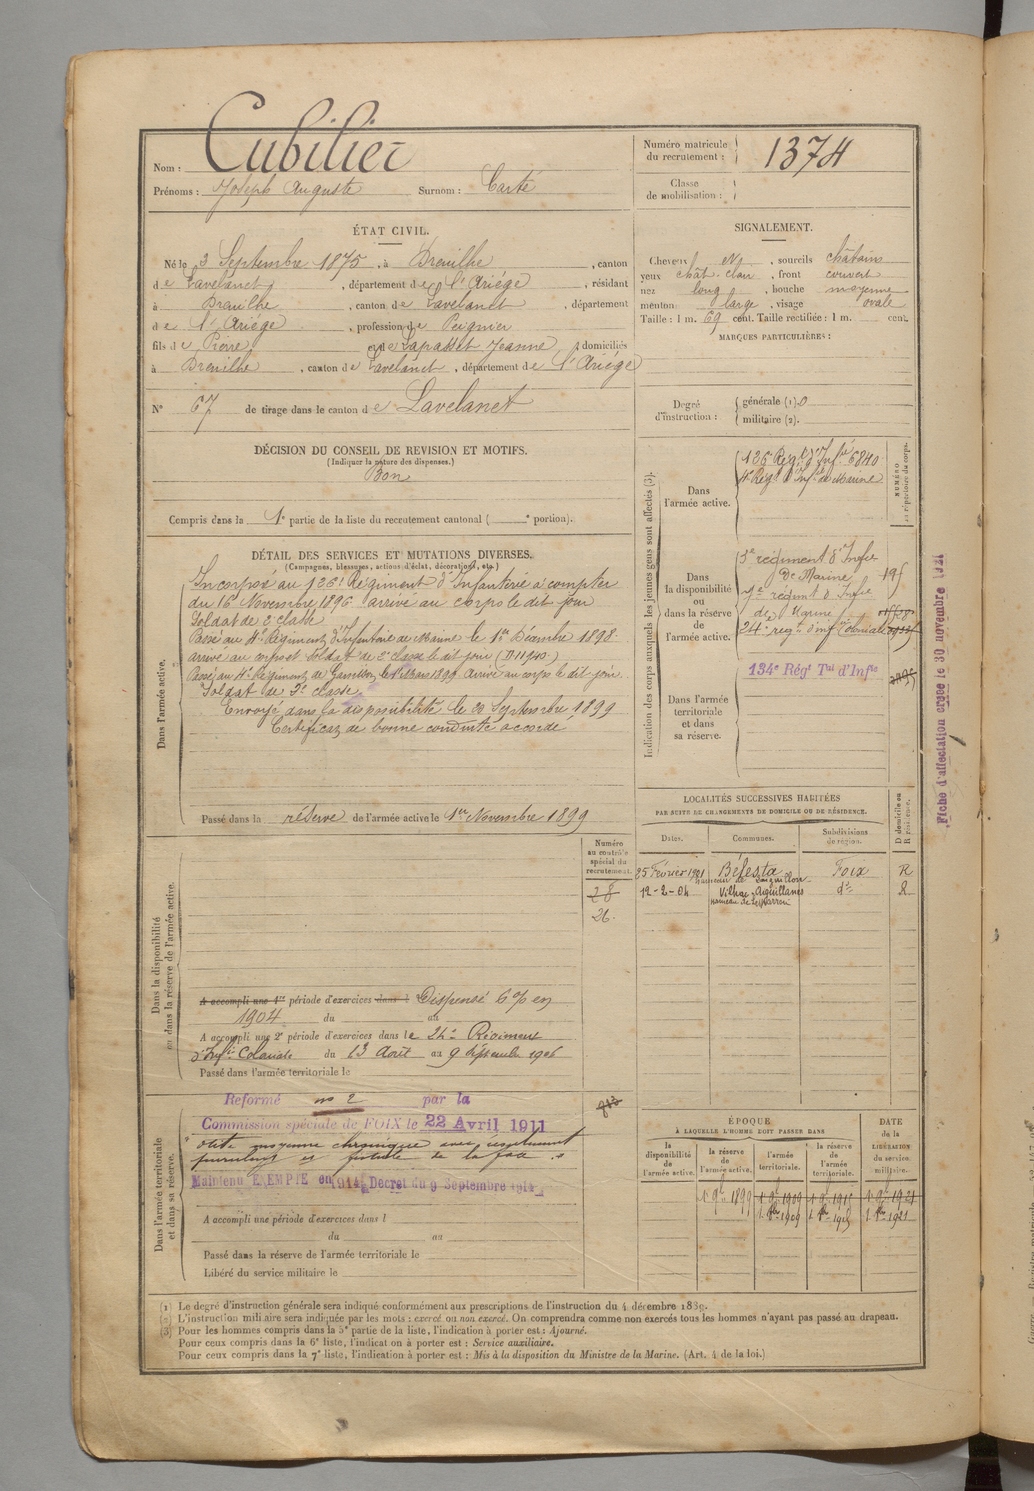 Nom : Cubilié
Prénoms : Joseph Auguste Surnom : Carté
Numéro matricule du recrutement : 1374
Classe de mobilisation :
ÉTAT CIVIL.
Né le 3 Septembre 1875, à Dreuilhe, canton
de Lavelanet, département de l'Ariége, résidant
à Dreuilhe, canton de Lavelanet, département
de l'Ariége, profession de Peignier
fils de Pierre et de Lapasset Jeanne, domiciliés
à Dreuilhe, canton de Lavelanet, département de l'Ariége
N° 67 de tirage dans le canton de Lavelanet
SIGNALEMENT.
Cheveux , sourcils châtains
yeux chât. clair, front couvert
nez long, bouche moyenne
menton large, visage ovale
Taille : 1 m. 69 cent. Taille rectifiée : 1 m. cent.
MARQUES PARTICULIÈRES :
Degré d'instruction : générale (1). 0
militaire (2).
DÉCISION DU CONSEIL DE REVISION ET MOTIFS.
(Indiquer la nature des dispenses.)
Bon
Compris dans la 1e partie de la liste du recrutement cantonal ( e portion).
DÉTAIL DES SERVICES ET MUTATIONS DIVERSES.
(Campagnes, blessures, actions d'éclat, décorations, etc.)
Dans l'armée active.
Incorporé au 126e Régiment d'Infanterie à compter
du 16 Novembre 1896 arrivé au corps le dit jour
Soldat de 2e classe
Passé au 4e Régiment d'Infanterie de Marine le 1er Décembre 1898
arrivé au corps et soldat de 2e classe le dit jour (D 11940.)
arrivé au corps le dit jour.
Soldat de 2e classe
Envoyé dans la disponibilité le 20 Septembre 1899
Certificat de bonne conduite accordé
Passé dans la réserve de l'armée active le 1er Novembre 1899
Indication des corps auxquels les jeunes gens sont affectés (3).
NUMÉRO au répertoire du corps.
Dans l'armée active.
126e Régt d'Infie 6840
4e Régt d'Infie de Marine
Dans la disponibilité ou dans la réserve de l'armée active.
3e régiment d'Infie
de Marine
régimt d'Infie
de Marine
24e régt d'inf. Coloniale
Dans l'armée territoriale et dans sa réserve.
134e Régt Tal d'Infie
Fiche d'affectation créée le 30 novembre 1921
LOCALITÉS SUCCESSIVES HABITÉES
PAR SUITE DE CHANGEMENTS DE DOMICILE OU DE RÉSIDENCE.
Dates. Communes. Subdivisions de région. D domicile ou R résidence.
25 Février 1901 Bélesta Foix R
12-2-04 d° R
Dans la disponibilité ou dans la réserve de l'armée active.
Numéro au contrôle spécial du recrutement.
28
26.
A accompli une 1re période d'exercices dans l Dispensé en
1904 du au
A accompli une 2e période d'exercices dans le 24e Régiment
d'Infie Coloniale du 13 Août au 9 Septembre 1906
Passé dans l'armée territoriale le
Dans l'armée territoriale et dans sa réserve.
Reformé n° 2 par la
Commission spéciale de FOIX le 22 Avril 1911
otite moyenne chronique avec écoulement
purulent et
Maintenu EXEMPTE en 1914 Décret du 9 Septembre 1914
A accompli une période d'exercices dans l
du au
Passé dans la réserve de l'armée territoriale le
Libéré du service militaire le
ÉPOQUE
À LAQUELLE L'HOMME DOIT PASSER DANS
DATE de la LIBÉRATION du service militaire.
la disponibilité de l'armée active. la réserve de l'armée active. l'armée territoriale. la réserve de l'armée territoriale.
1 9bre 1899 1 9bre 1909 1 9bre 1915 1 9bre 1921
(1) Le degré d'instruction générale sera indiqué conformément aux prescriptions de l'instruction du 4 décembre 1889.
(2) L'instruction militaire sera indiquée par les mots : exercé ou non exercé. On comprendra comme non exercés tous les hommes n'ayant pas passé au drapeau.
(3) Pour les hommes compris dans la 5e partie de la liste, l'indication à porter est : Ajourné.
Pour ceux compris dans la 6e liste, l'indication à porter est : Service auxiliaire.
Pour ceux compris dans la 7e liste, l'indication à porter est : Mis à la disposition du Ministre de la Marine. (Art. 4 de la loi.)